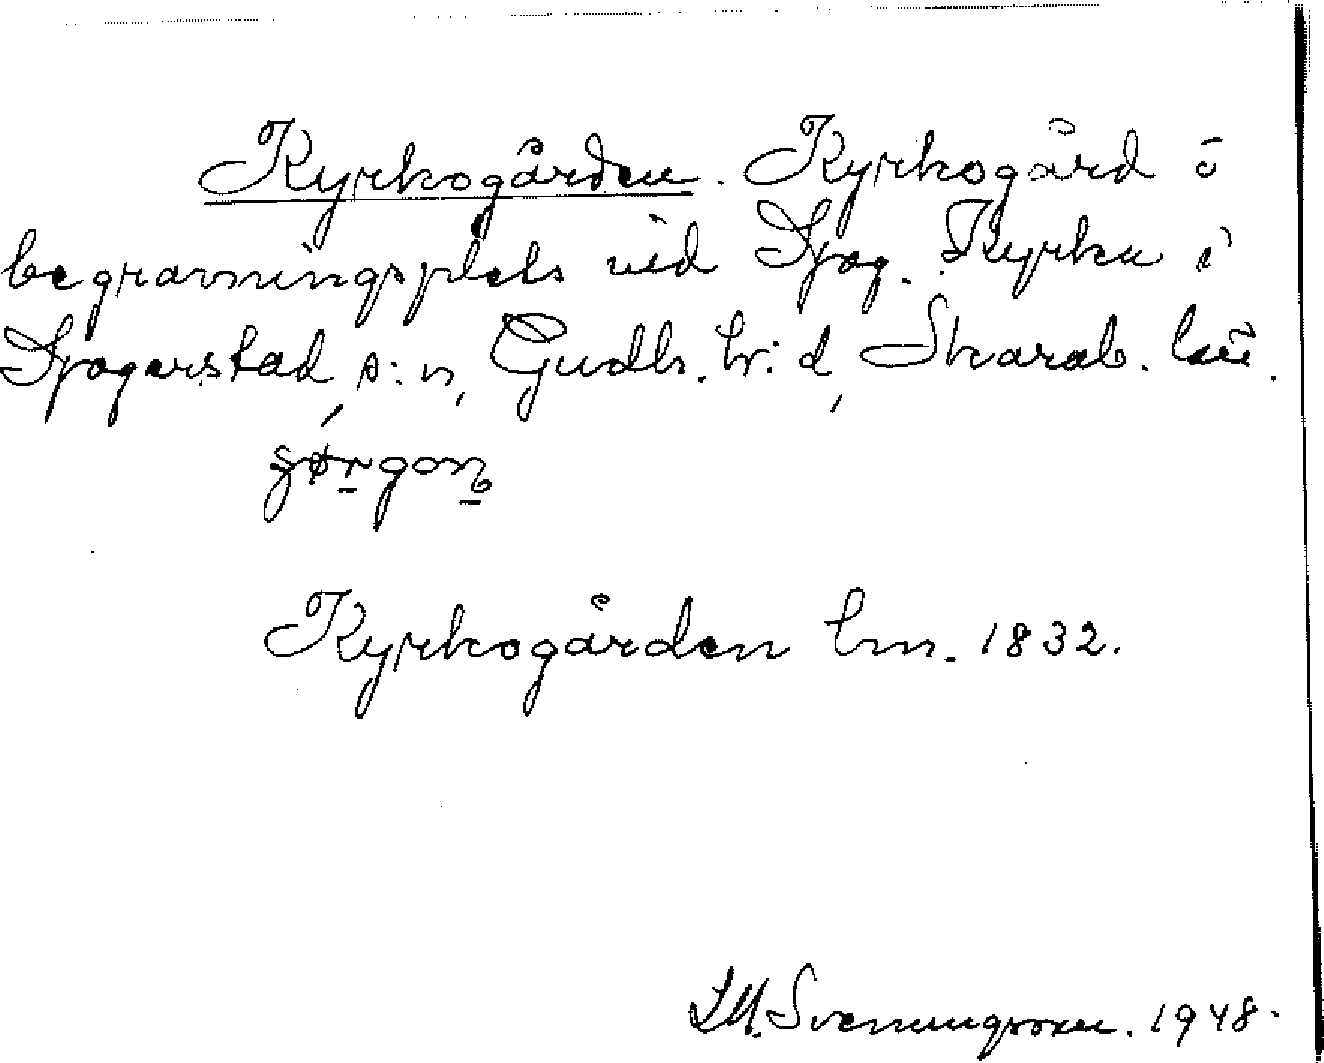 Kyrkogården. Kyrkogård o
begravningsplats vid Sjog. Kyrka i
Sjogerstad s:n, Gudh. h:d, Skarab. län.
Kyrkogården lm. 1832.
Svenungsson. 1948.